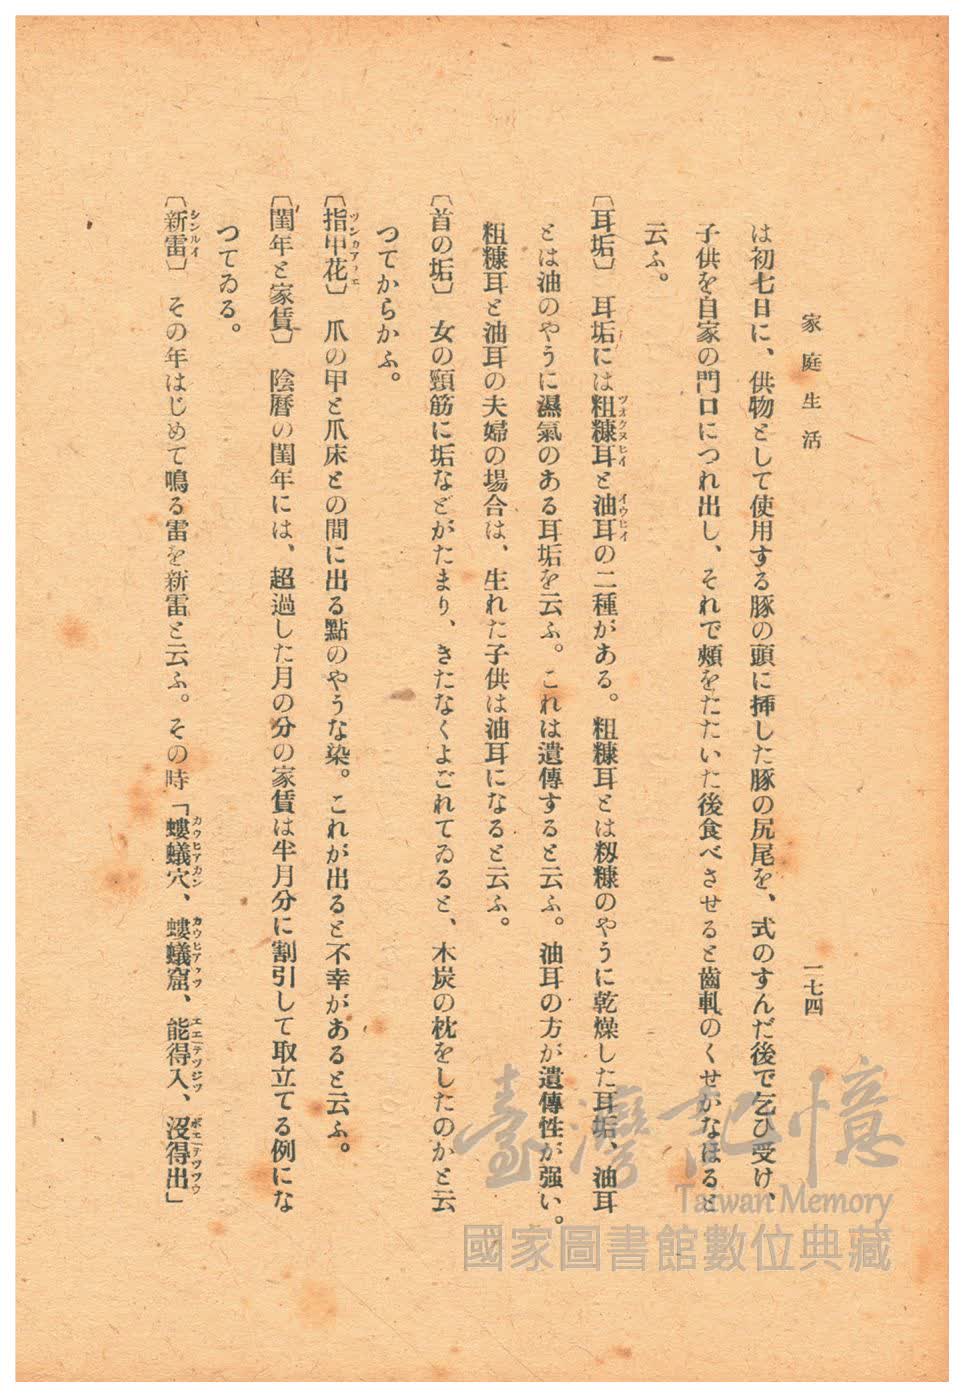 家庭生活
一七四
は初七日に、供物として使用する豚の頭に挿した豚の尻尾を、式のすんだ後で乞ひ受け、
子供を自家の門口につれ出し、それで頰をたたいた後食べさせると齒軋のくせがなほると
云ふ。
〔耳垢〕 耳垢には粗糠耳と油耳の二種がある。粗糠耳とは籾糠のやうに乾燥した耳垢、油耳
ツオクヌヒイ イウヒイ
とは油のやうに濕氣のある耳垢を云ふ。これは遺傳すると云ふ。油耳の方が遺傳性が强い。
粗糠耳と油耳の夫婦の場合は、生れた子供は油耳になると云ふ。
〔首の垢〕 女の頸筋に垢などがたまり、きたなくよごれてゐると、木炭の枕をしたのかと云
つてからかふ。
〔指甲花〕 爪の甲と爪床との間に出る點のやうな染。これが出ると不幸があると云ふ。
ツンカアフエ
〔閏年と家賃〕 陰曆の閏年には、超過した月の分の家賃は半月分に割引して取立てる例にな
つてゐる。
〔新雷〕 その年はじめて鳴る雷を新雷と云ふ。その時「螻蟻穴、螻蟻窟、能得入、沒得出」
シンルイ カウヒアカン カウヒアクツ エエテツジプ ボエテツツウ
臺灣記憶
Taiwan Memory
國家圖書館數位典藏